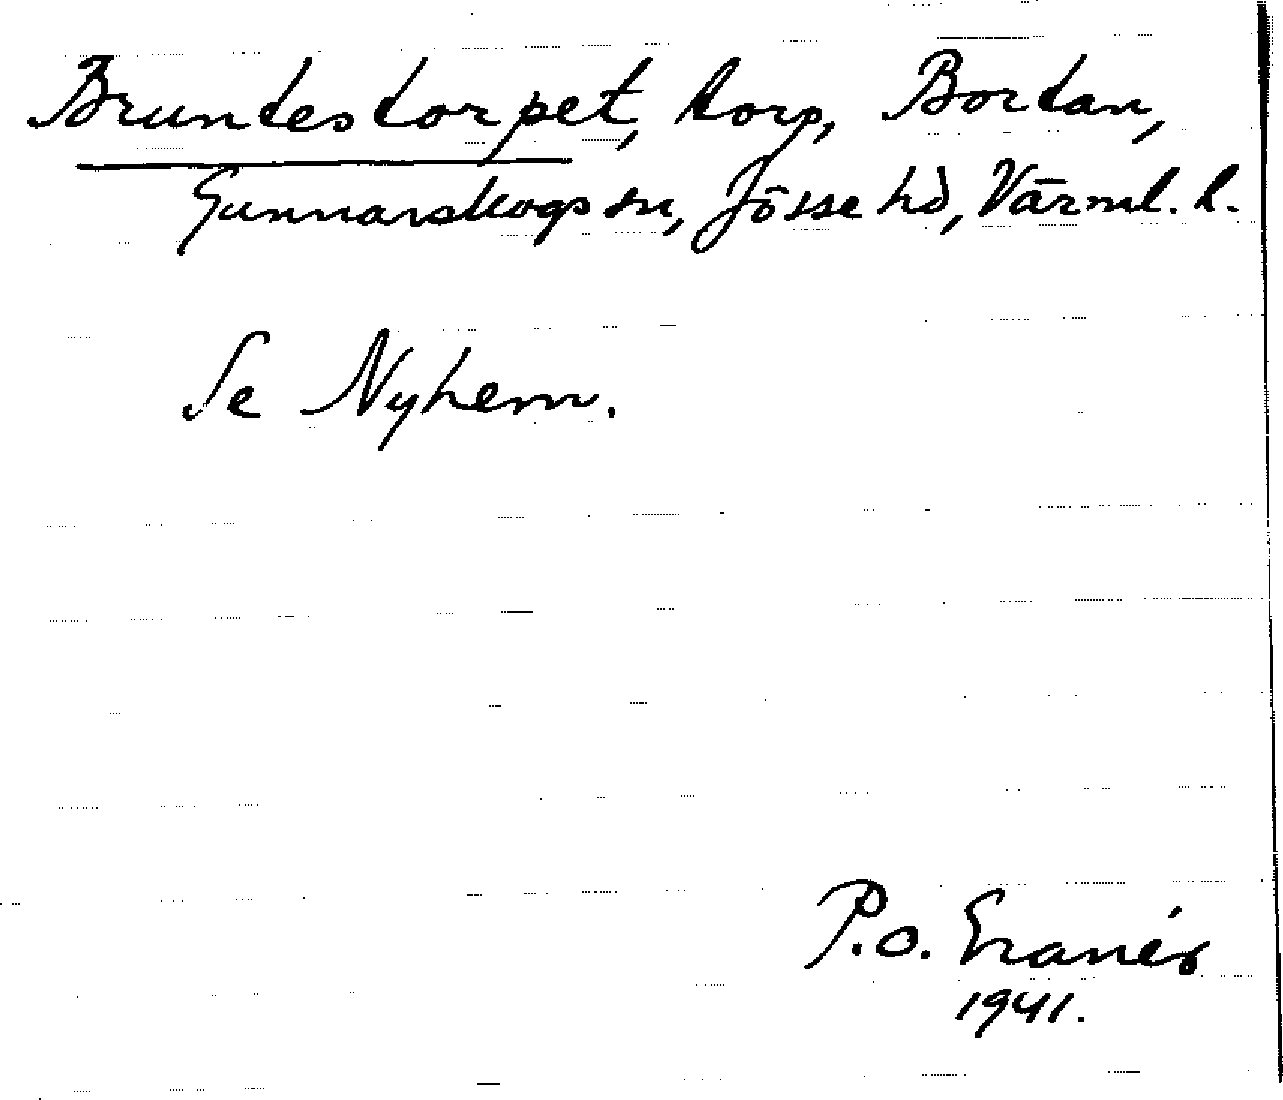 Brundestorpet, torp, Bortan,
Gunnarskogs sn, Jösse hd, Värml. l.
Se Nyhem.
P.o. Granér
1941.